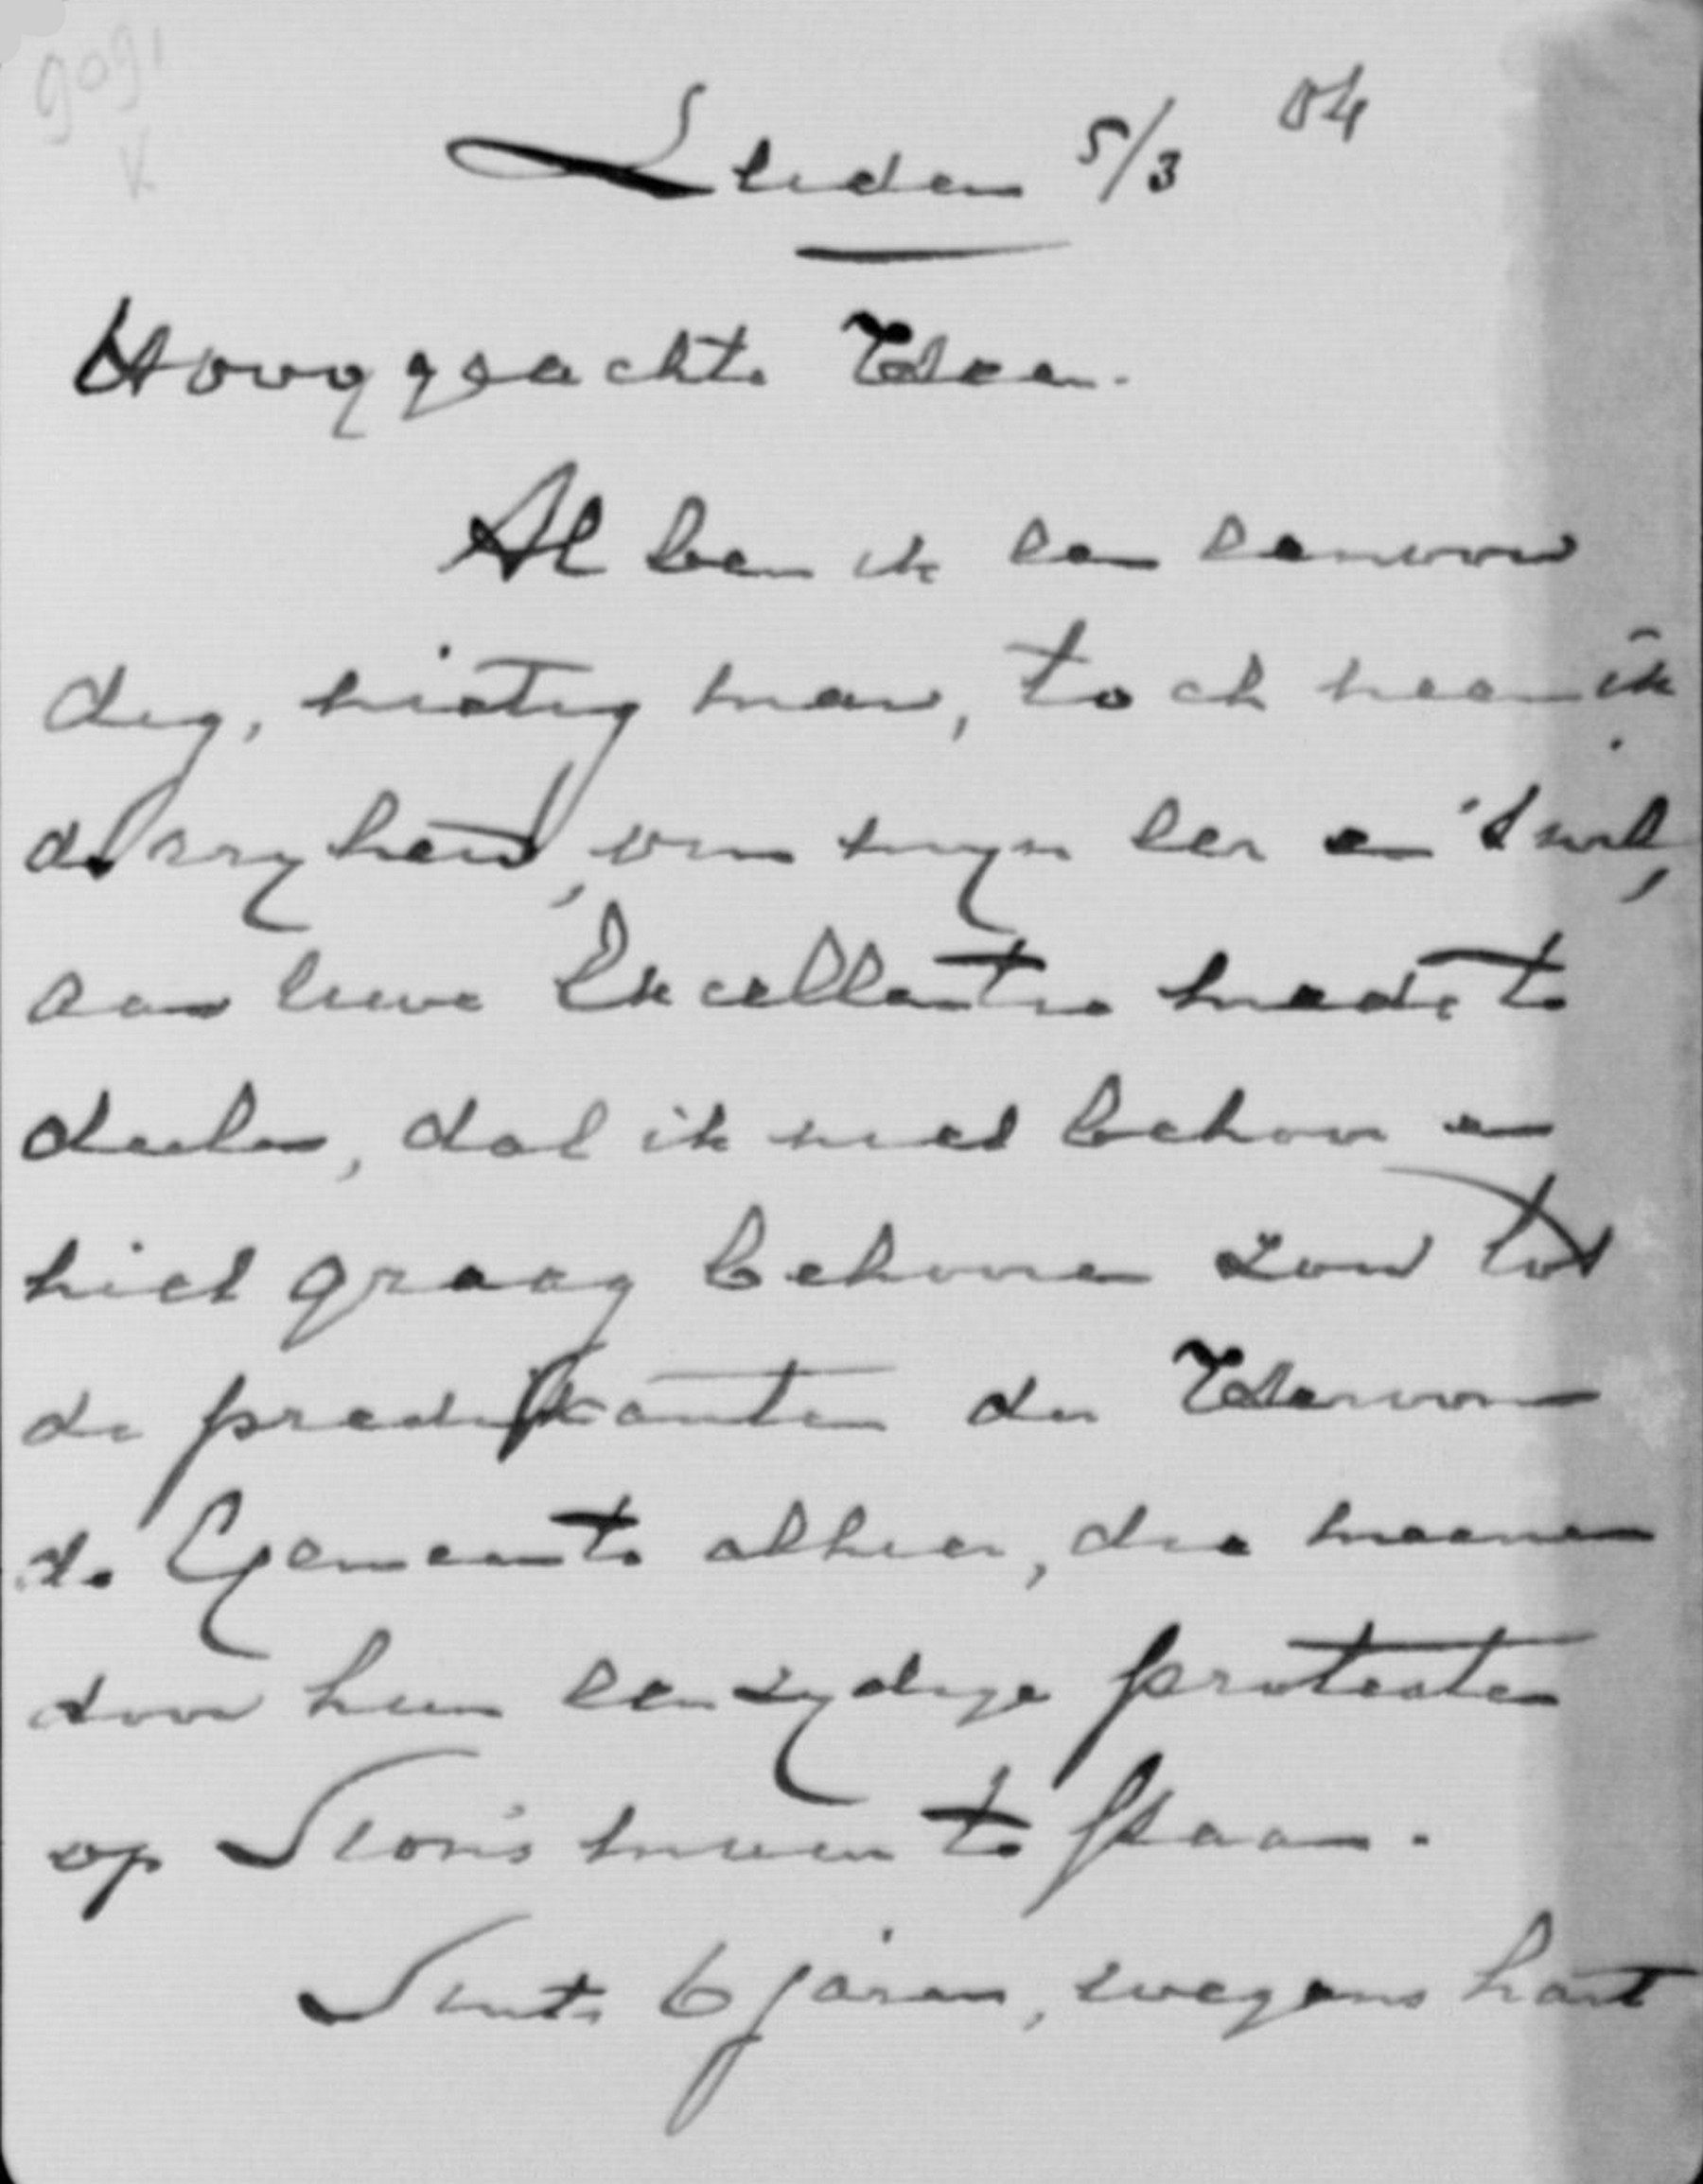 9091
K
Leiden 5/3 04
Hooggeachte Heer.
Al ben ik een eenvou
dig, nietig man, toch neem ik
de vryheid, om myn eer en 't wel,
aan Uwe Excellentie mede te
deelen, dat ik niet behoor en
niet graag behooren zou tot
de predikanten der Hervorm
de Gemeente alhier, die meenen
door hun eenzydige protesten
op Sions muren te staan.
Sints 6 jaren, wegens hart